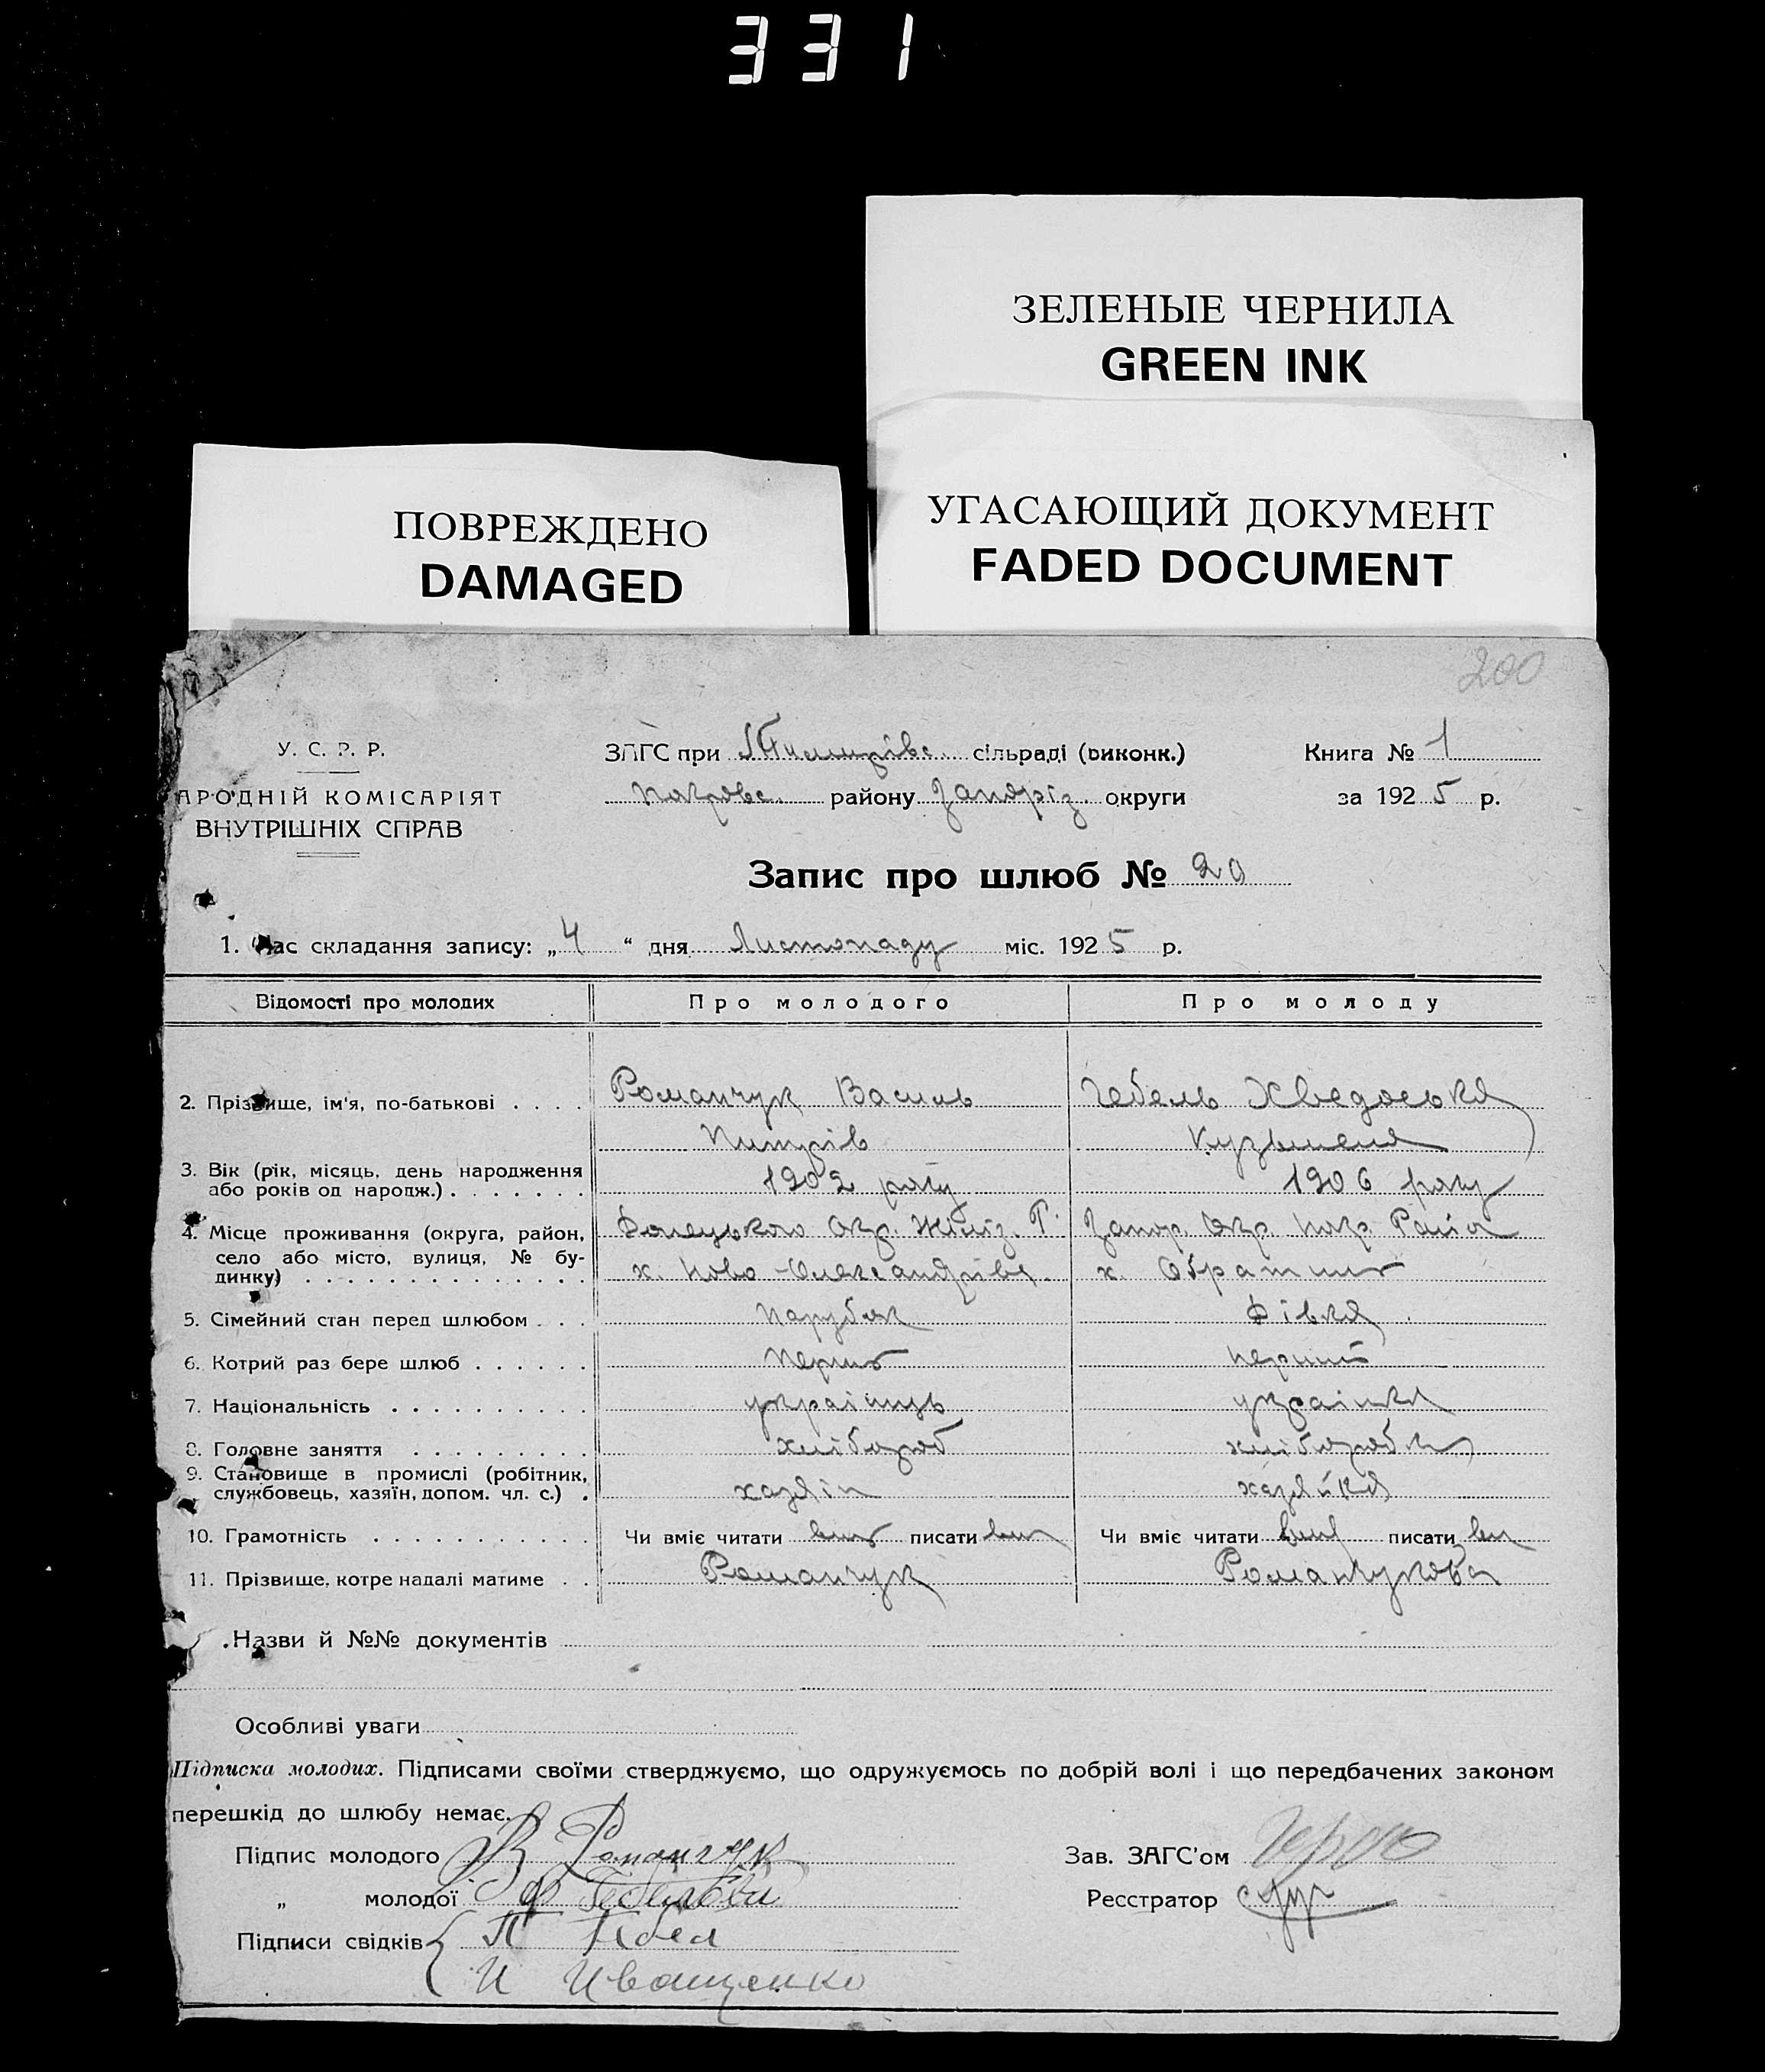 331
ЗЕЛЕНЫЕ ЧЕРНИЛА
GREEN INK
ПОВРЕЖДЕНО
DAMAGED
УГАСАЮЩИЙ ДОКУМЕНТ
FADED DOCUMENT
200
У. С. Р. Р.
АРОДНІЙ КОМІСАРІЯТ
ВНУТРІШНІХ СПРАВ
ЗАГС при сільраді (виконк.)
Покровс. району Запоріз. округи
Книга № 1
за 1925 р.
Запис про шлюб № 20
1. Час складання запису: „4“ дня Листопаду міс. 1925 р.
Відомості про молодих Про молодого Про молоду
2. Прізвище, ім'я, по-батькові . . . . Романчук Василь Гебель Хведоська
Питрів Кузьменя
3. Вік (рік, місяць, день народження
або років од народж.) . . . . . . . 1902 року 1906 року
4. Місце проживання (округа, район,
село або місто, вулиця, № бу-
динку) . . . . . . . . . . . . . .
Донецького Окр. Р. Запор. Окр. Покр. Район
х. Ново-Олександрівс. х.
5. Сімейний стан перед шлюбом . . . Парубок Дівка
6. Котрий раз бере шлюб . . . . . . Перший перший
7. Національність . . . . . . . . . . українць українка
8. Головне заняття . . . . . . . . . хлібороб хліборобка
9. Становище в промислі (робітник,
службовець, хазяїн, допом. чл. с.) . хазяін хазяйка
10. Грамотність . . . . . . . . . . . Чи вміє читати вміє писати вміє Чи вміє читати вміє писати вміє
11. Прізвище, котре надалі матиме . . Романчук Романчукова
Назви й №№ документів
Особливі уваги
Підписка молодих. Підписами своїми стверджуємо, що одружуємось по добрій волі і що передбачених законом
перешкід до шлюбу немає.
Підпис молодого В Романчук
„ молодої Ф Гебельова
Підписи свідків П Гебел
И Иващенко
Зав. ЗАГС'ом
Реєстратор